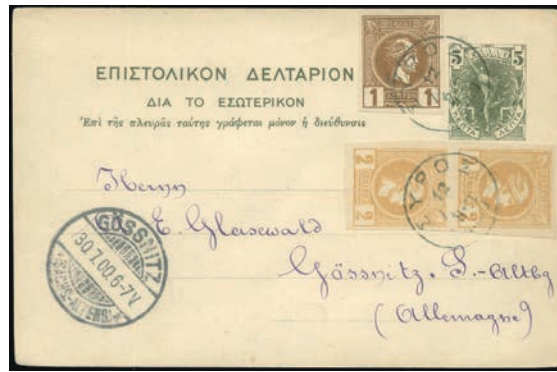 ΕΠΙΣΤΟΛΙΚΟΝ ΔΕΛΤΑΡΙΟΝ
ΔΙΑ ΤΟ ΕΣΩΤΕΡΙΚΟΝ
Ἐπὶ τῆς πλευρᾶς ταύτης γράφεται μόνον ἡ διεύθυνσις
1 1
5 ΕΛΛΑΣ 5
ΛΕΠΤΑ ΛΕΠΤΑ
2 2
ΣΥΡΟΣ
12
Herrn
E. Gleisewald
Gössnitz. S.-Altbg
(Allemagne)
GÖSSNITZ
30.7.00.6-7V.